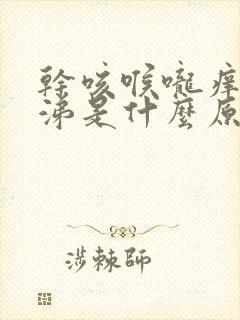 幹咳喉嚨癢
涕是什麼原
涉棘師